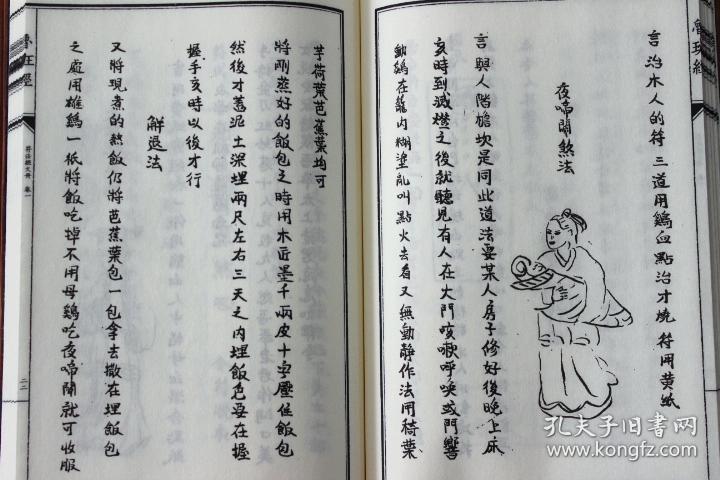 魯班經
言治木人的符三道用鷄血點治才燒符用黄紙
夜啼鬧煞法
言與人階膽坎是同此道法要某人房子修好後晚上床
亥時到滅燈之後就聽見有人在大門咳嗽呼喚或門響
動鷄在籠内糊塗亂叫點火去看又無動静作法用荷葉
芋荷葉芭蕉葉均可
將剛蒸好的飯包之時用木匠墨千兩皮十字壓住飯包
然後才蓋泥土深埋兩尺左右三天之内埋飯包要在握
握手亥時以後才行
解退法
又將現煮的熬飯仍將芭蕉葉包一包拿去撒在埋飯包
之處用雄鷄一祇將飯吃掉不用母鷄吃夜啼鬧就可收服
魯班經
孔夫子旧書网
kongfz.com